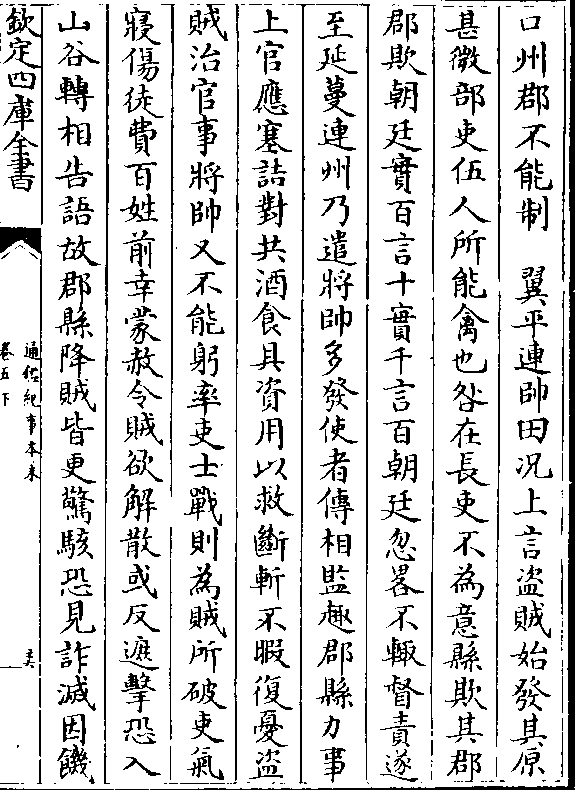 口州郡不能制　翼平連帥田况上言盗賊始發其原
甚微部吏伍人所能禽也咎在長吏不為意縣欺其郡
郡欺朝廷實百言十實千言百朝廷忽畧不輙督責遂
至延蔓連州乃遣將帥多發使者傳相監趣郡縣力事
上官應塞詰對共酒食具資用以救斷斬不暇復憂盗
賊治官事將帥又不能躬率吏士戰則為賊所破吏氣
寖傷徒費百姓前幸蒙赦令賊欲解散或反遮擊恐入
山谷轉相告語故郡縣降賊皆更驚駭恐見詐滅因饑
欽定四庫全書
通鑑紀事本末
卷五下